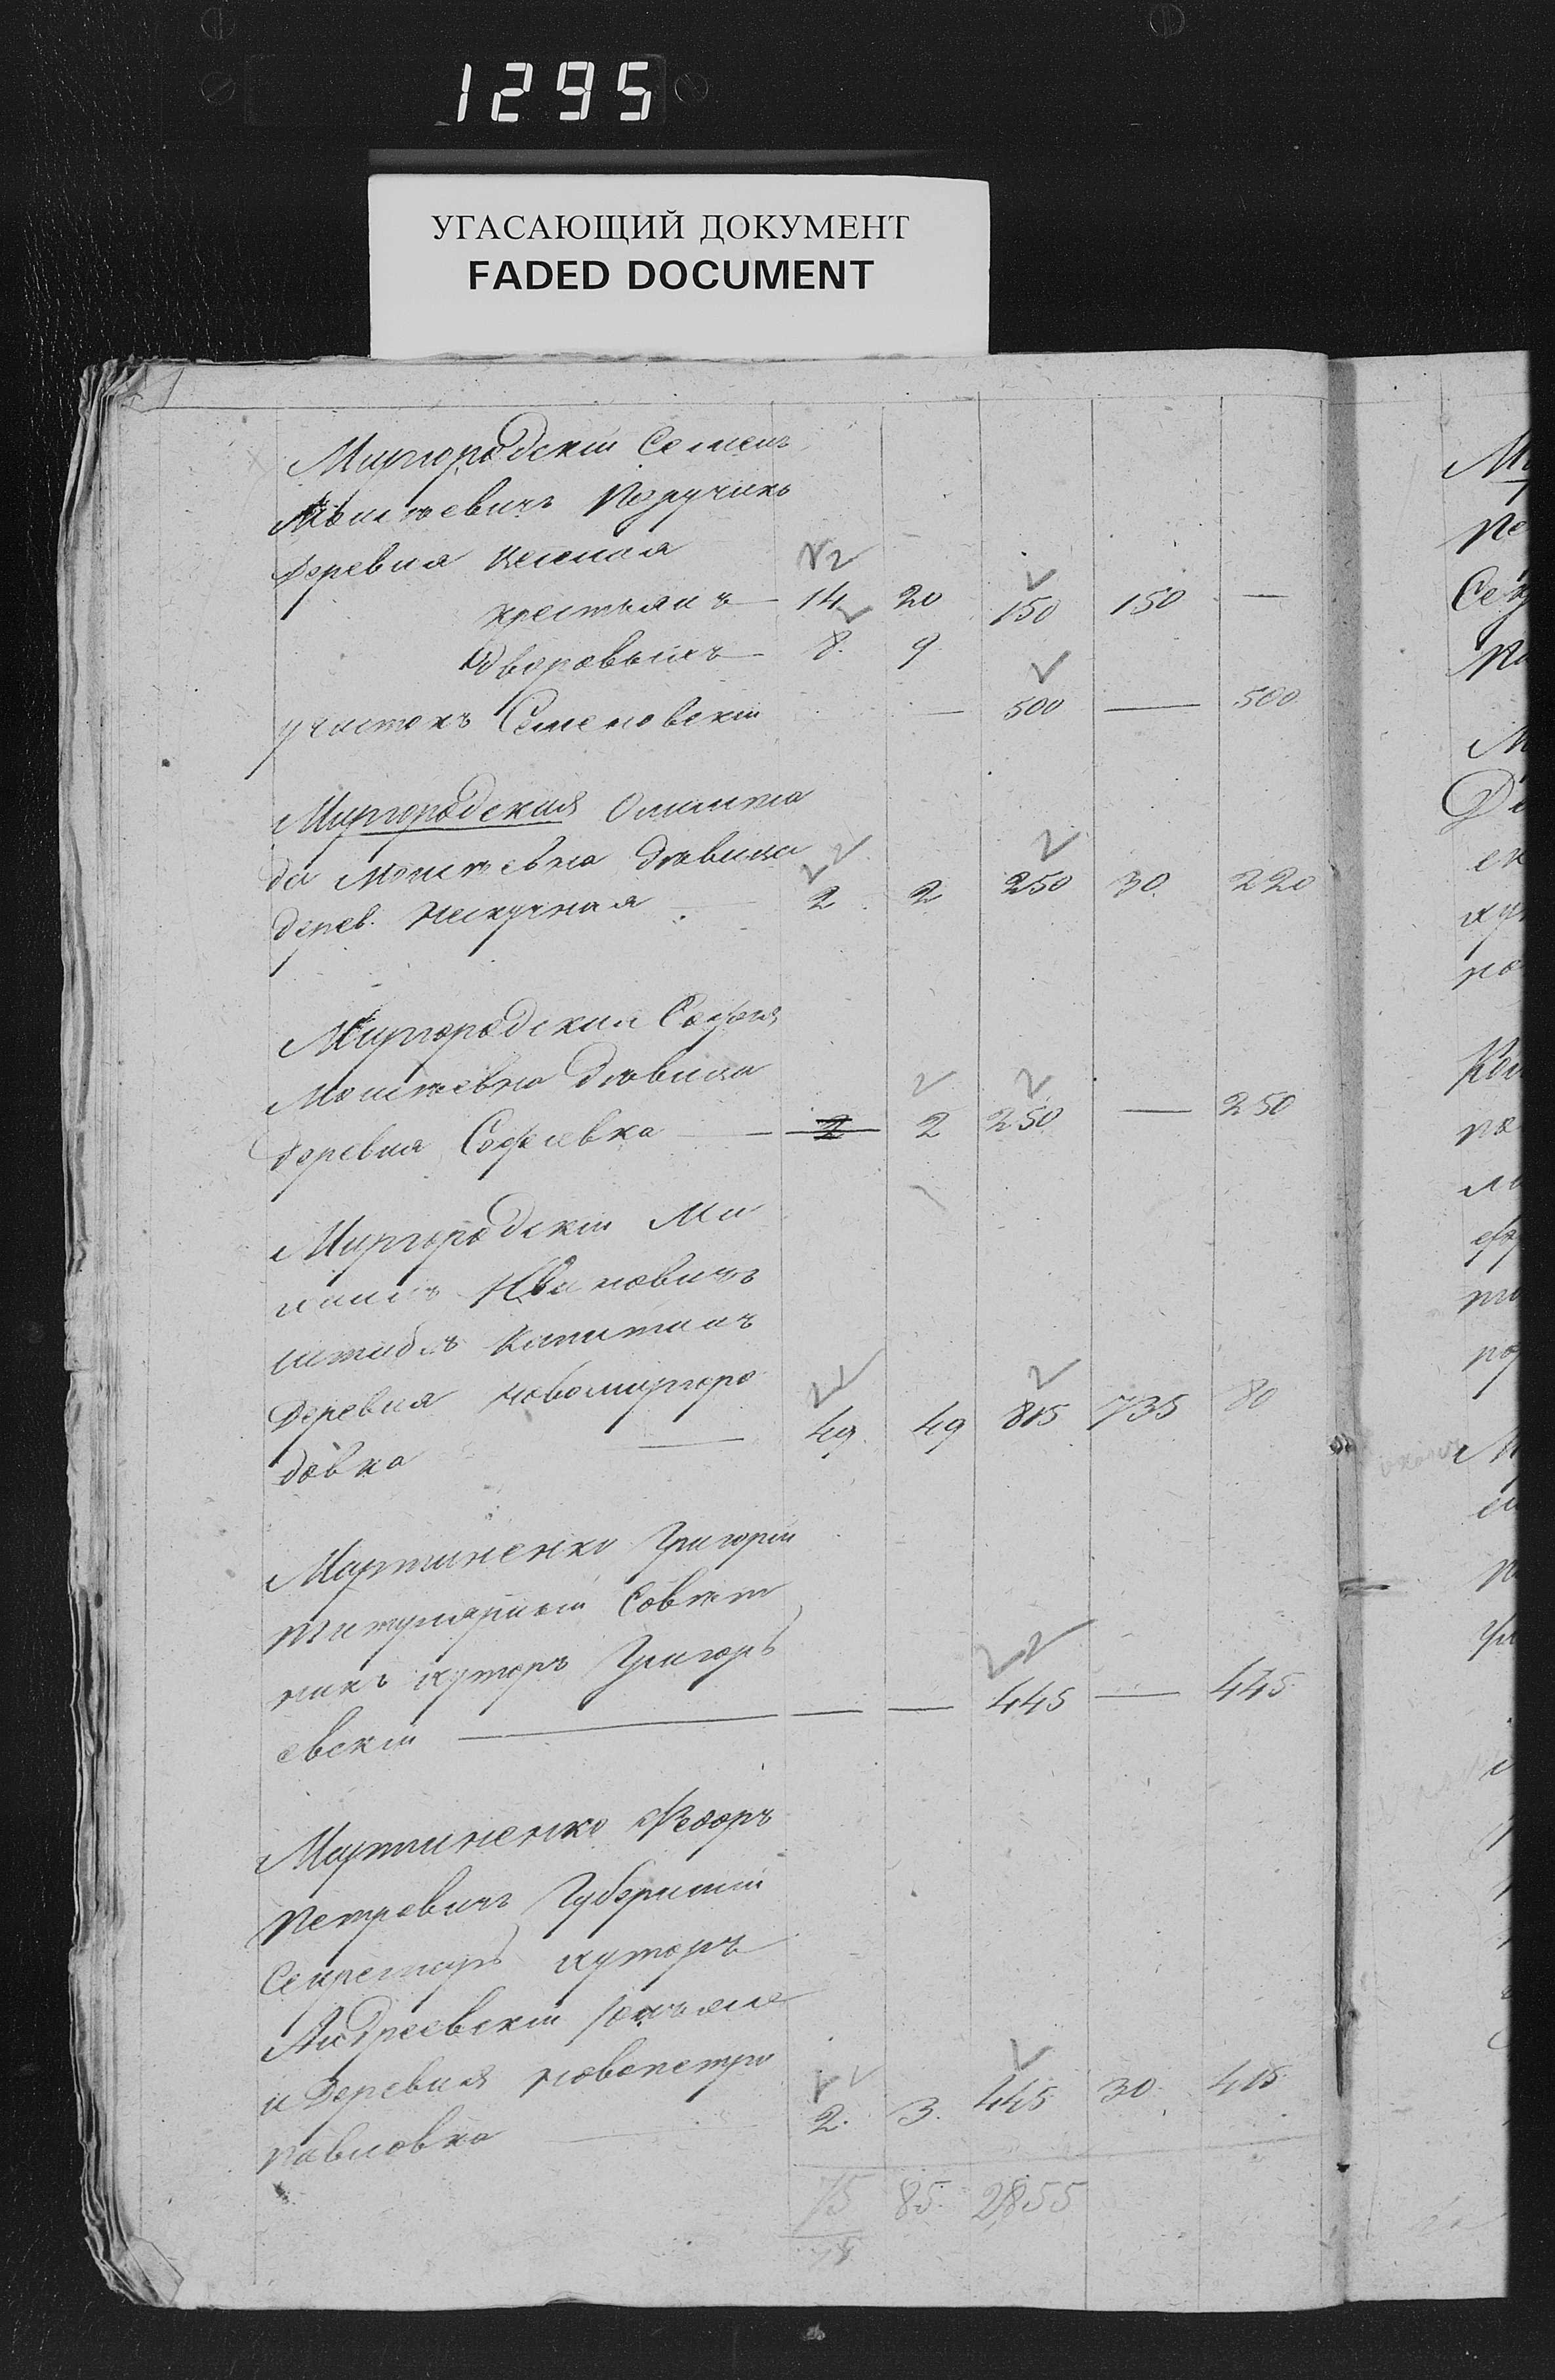 1295
УГАСАЮЩИЙ ДОКУМЕНТ
FADED DOCUMENT
Миргородскій Семенъ
Моисѣевичъ Поручикъ
деревня
крестьянъ — 14 20 150 150 —
дворовыхъ — 8. 9
участокъ Семеновскій — 500 — 500
Миргородская Олимпіа
да Моисѣевна дѣвица
дерев. Нескучная — 2. 2 250 30. 220
Миргородская Софія
Моисѣевна дѣвица
деревня Софіевка — 2 2 250 — 250
Миргородскій Ми
хаилъ Ивановичъ
штабсъ Капитанъ
деревня Новомиргоро
довка — 49. 49 815 735 80
Мартиненко Григорій
Титулярный Совѣт
никъ хуторъ Григорь
евскій — — — 445 — 445
Мартиненко Федоръ
Петровичъ Губернскій
Секретарь хуторъ
Андреевскій
и деревня Новопетро
павловка — 2. 3. 445 30. 415
75 85 2855